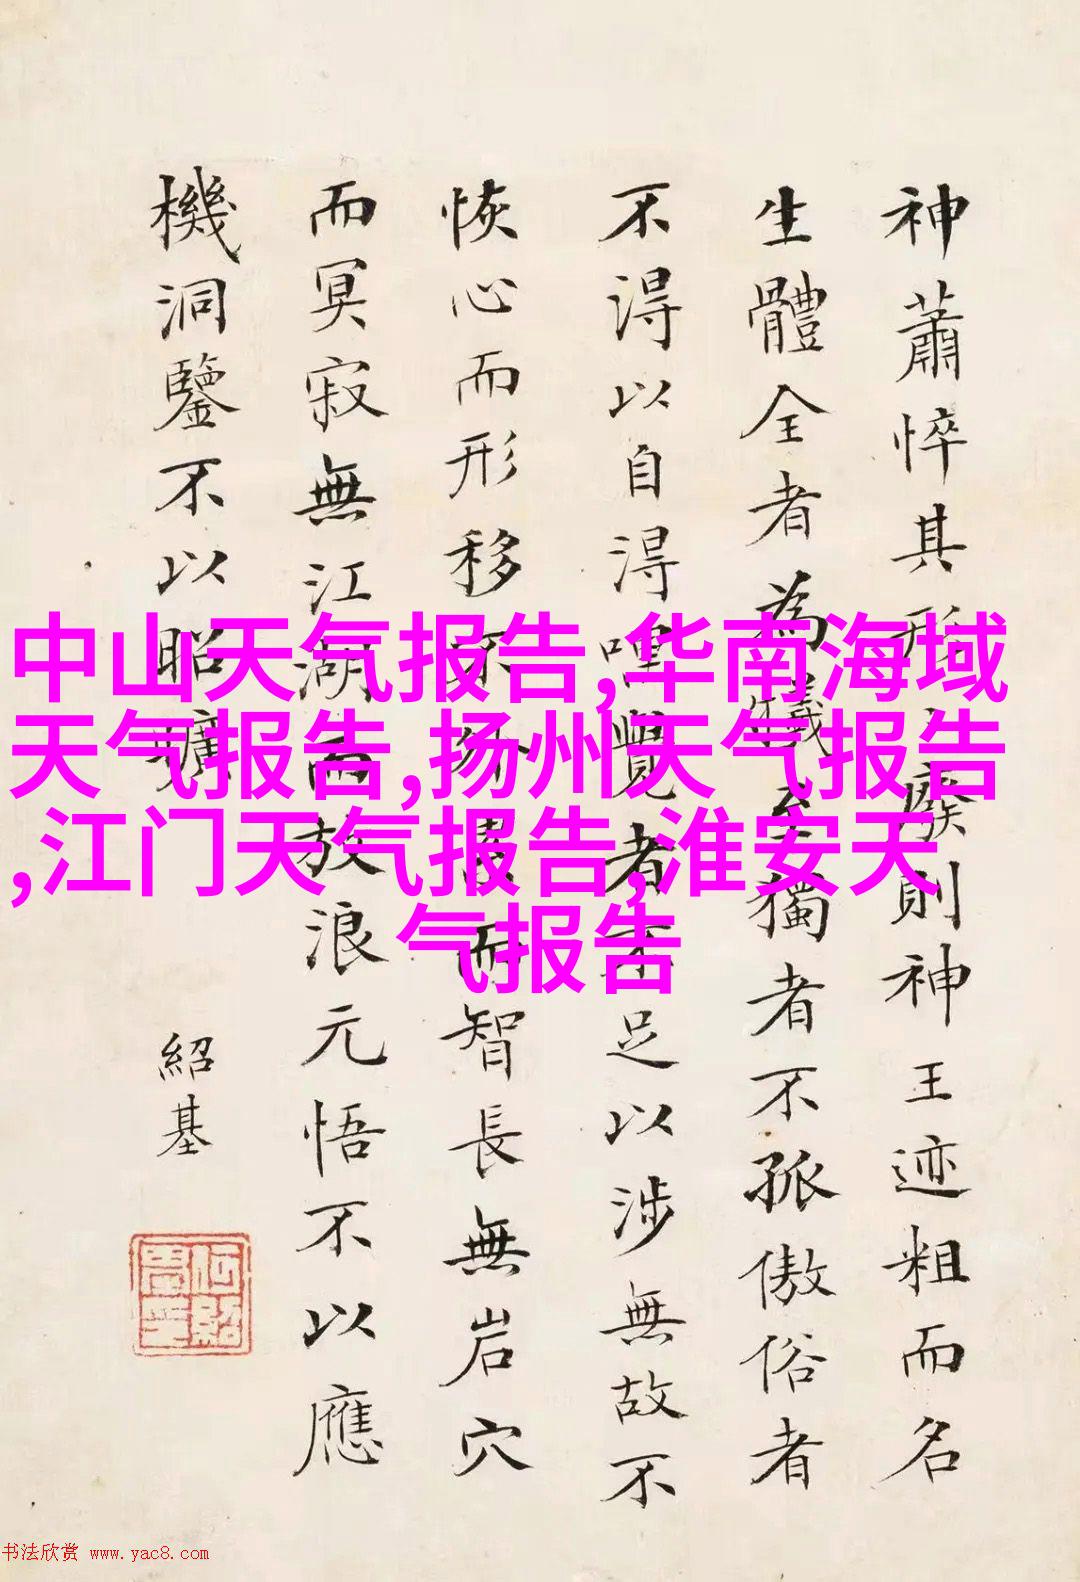 神蕭悴其形廢則神王迹粗而名
生體全者為犧至獨者不孤傲俗者
不得以自得唯覺者不足以涉無故不
恢心而形移不而智長無岩穴
而冥寂無江湖而放浪元悟不以應
機洞鑒不以昭曠
紹基
中山天气报告,华南海域
天气报告,扬州天气报告
,江门天气报告,淮安天
气报告
书法欣赏 www.yac8.com